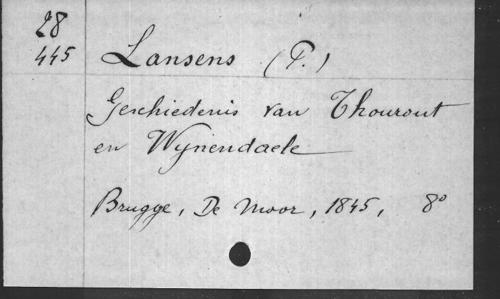 28
445 Lansens (P.)
Geschiedenis van Thourout
en Wynendaele
Brugge, De Moor, 1845, 8°